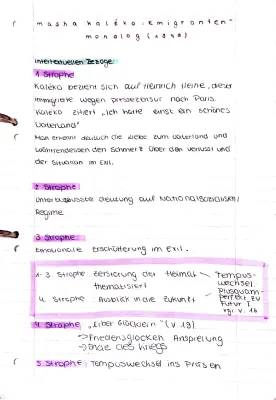 mascha kaléko: emigranten-
monolog (1945)
intertextuellen Bezüge
1. Strophe
Kaléko bezieht sich auf Heinrich Heine, dieser
immigrierte wegen pressezensur nach Paris.
Kaléko zitiert „Ich hatte einst ein schönes
Vaterland"
Man erkennt deutlich die Liebe zum Vaterland und
währenddessen den Schmerz über den verlust und
der Situation im Exil.
2. Strophe
Unterbewusste deutung auf Nationalsozialismus/
Regime
3. Strophe:
Emotionale Erschütterung im Exil.
1-3. Strophe Zerstörung der Heimat
thematisiert
4. Strophe Ausblick in die Zukunft
Tempus-
wechsel
plusquam-
perfekt zu
Futur I
vgl. v. 16
4. Strophe „Liber Glocken" (v. 19)
→ Friedensglocken Anspielung
→ Ende des Kriegs
5. Strophe: Tempuswechsel ins Präsens